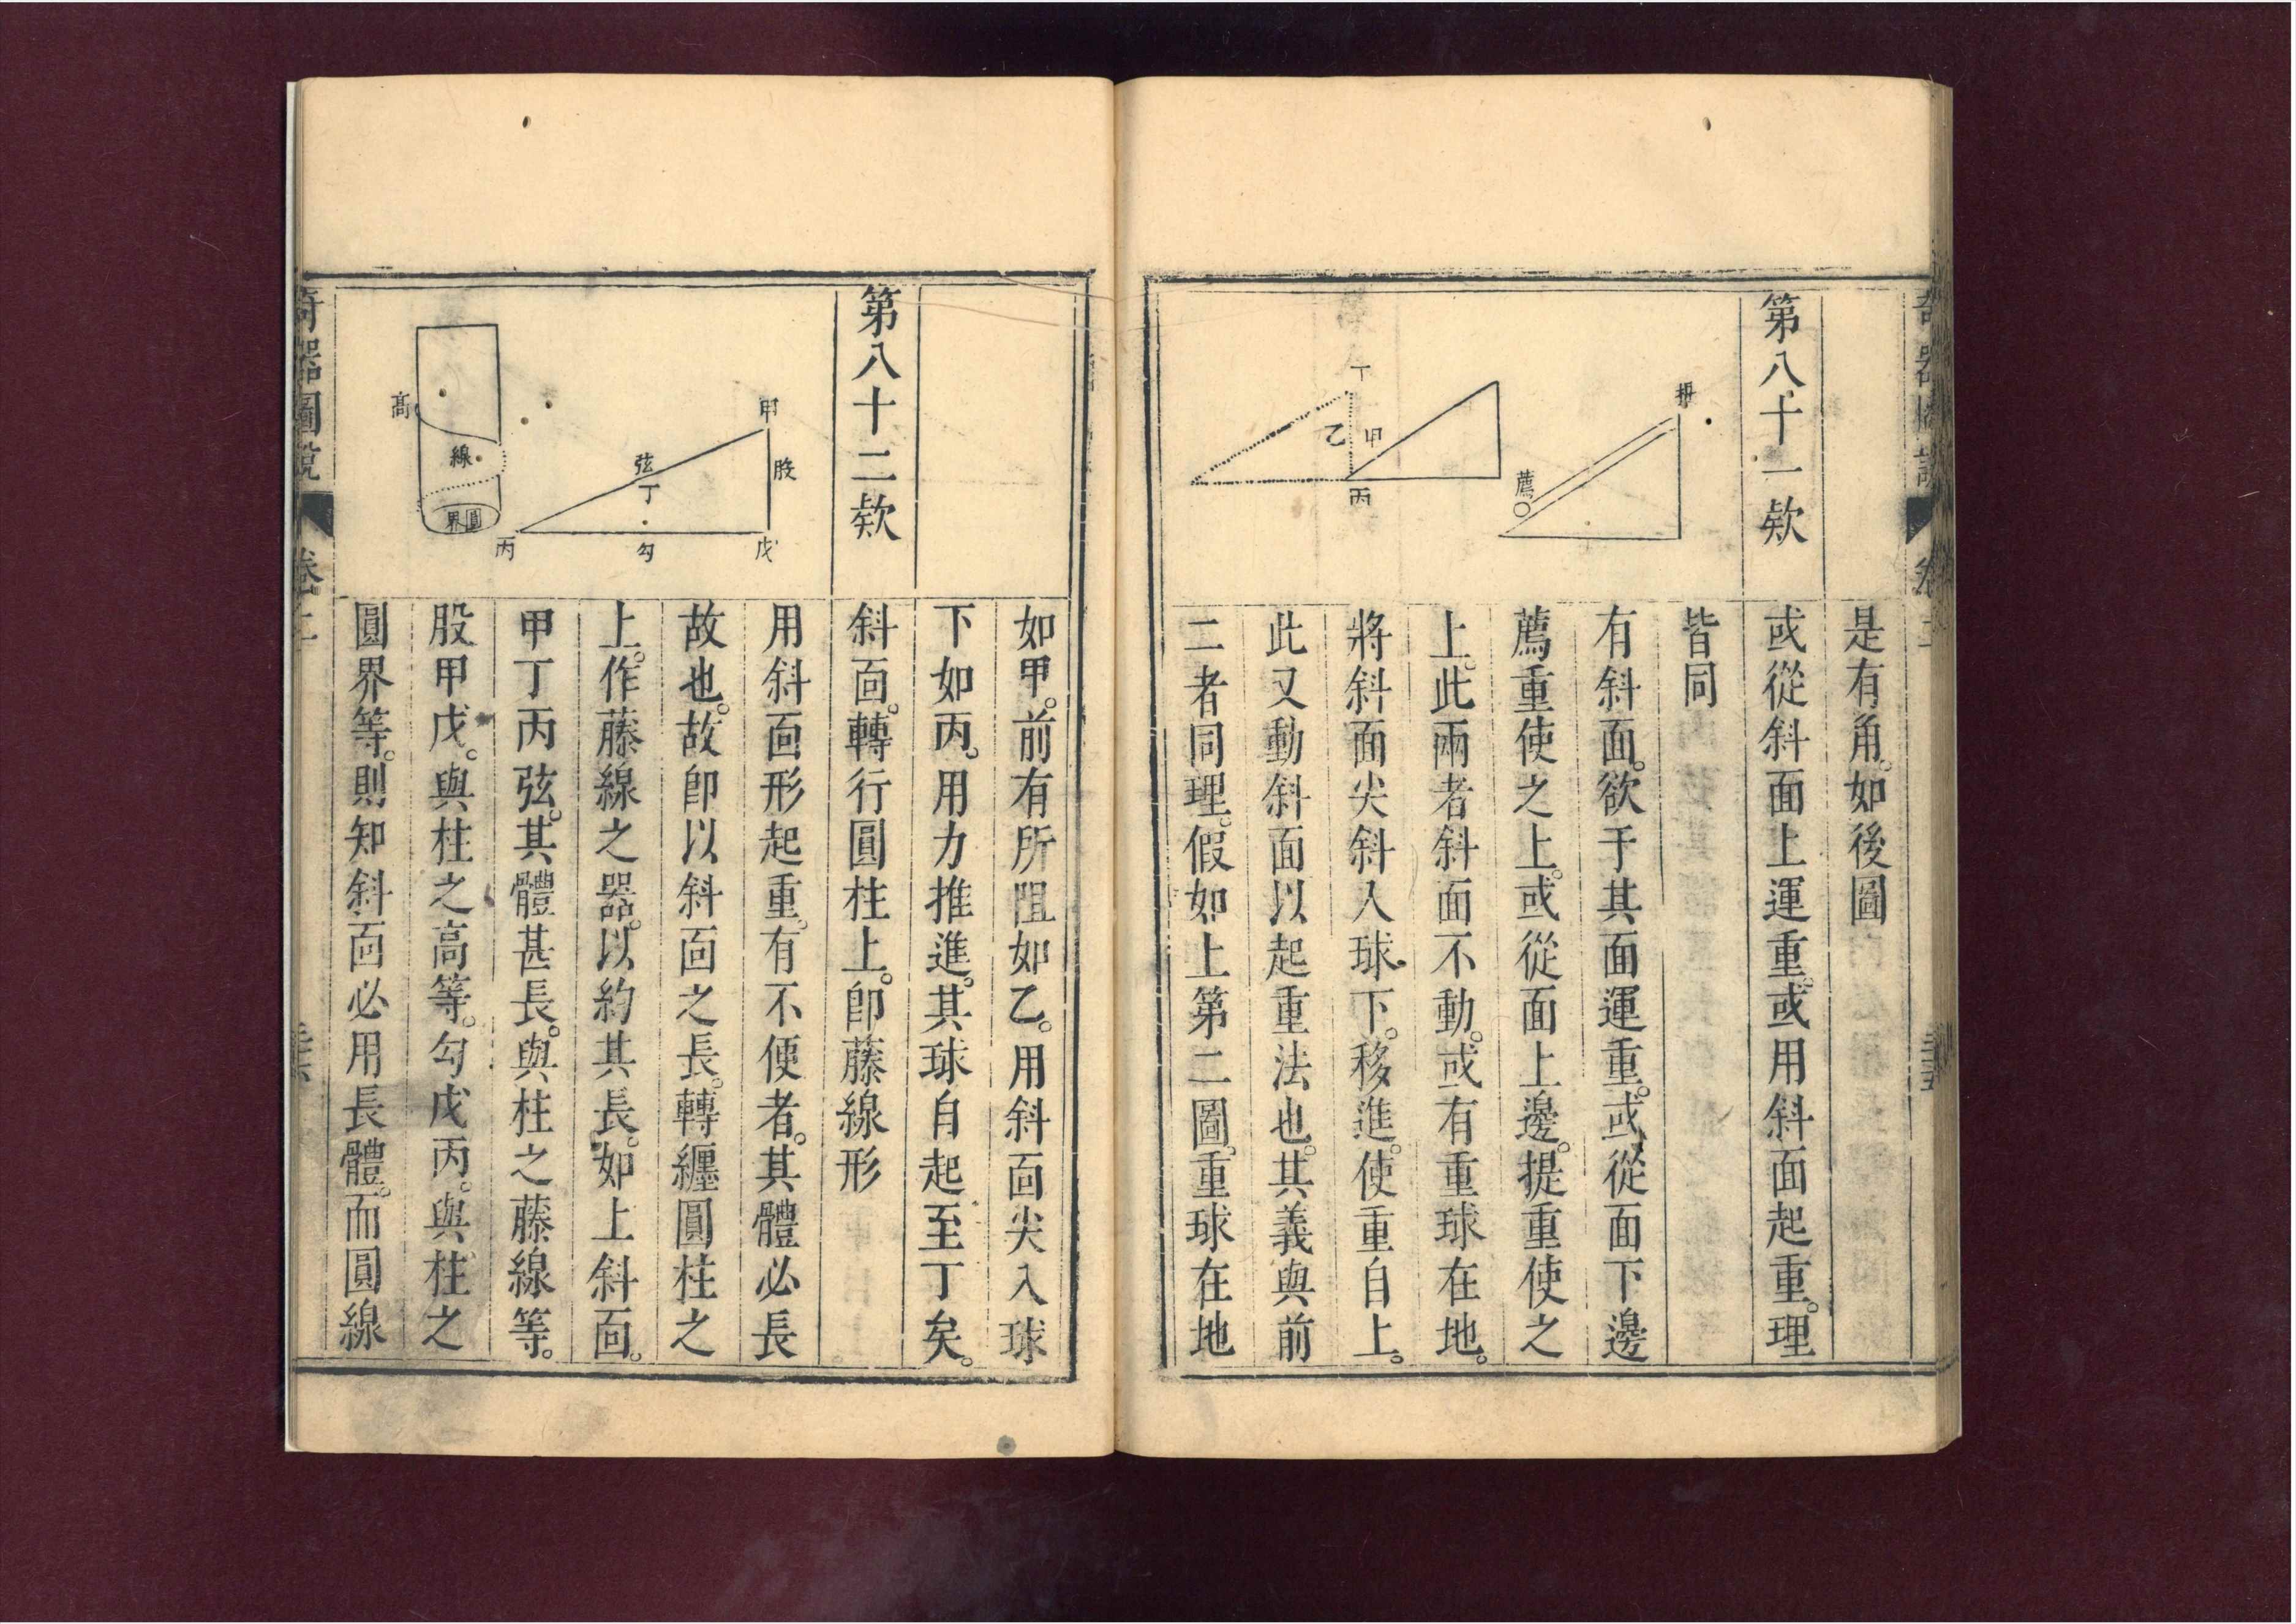 奇器圖說
卷二
是有角。如後圖
第八十一欵
或從斜面上運重。或用斜面起重。理
皆同
有斜面。欲于其面運重。或從面下邊
薦重使之上。或從面上邊。提重使之
上。此兩者斜面不動。或有重球在地。
將斜面尖斜入球下。移進。使重自上。
此又動斜面以起重法也。其義與前
二者同理。假如上第二圖。重球在地
薦
丁
乙
甲
丙
如甲。前有所阻如乙。用斜面尖入球
下如丙。用力推進。其球自起至丁矣。
第八十二欵
斜面。轉行圓柱上。卽藤線形
用斜面形起重。有不便者。其體必長
故也。故卽以斜面之長。轉纏圓柱之
上。作藤線之器。以約其長。如上斜面。
甲丁丙弦。其體甚長。與柱之藤線等。
股甲戊。與柱之高等。勾戊丙。與柱之
圓界等。則知斜面必用長體。而圓線
甲
股
戊
弦
丁
勾
丙
高
線
圓界
奇器圖說
卷二